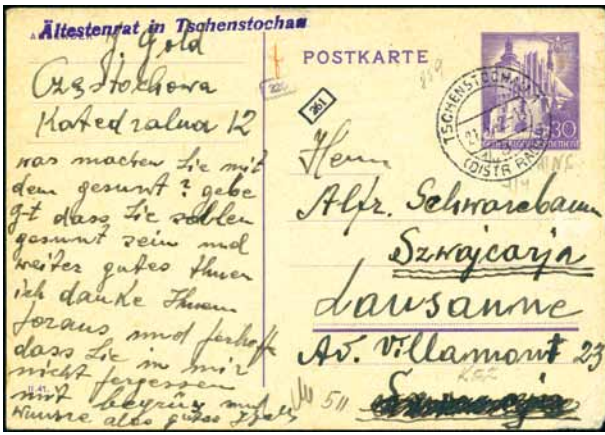 Ältestenrat in Tschenstochau
J. Gold
Częstochowa
Katedralna 12
was machen Sie mit
dem gesunt? gebe
g-t dass Sie sohlen
gesunt sein und
weiter gutes Ihnen
ich danke Ihnen
foraus und ferhoffe
dass Sie in mir
nicht fergessen
mit begrüs und
wunsse ales gutes
II.41.
POSTKARTE
859
261
TSCHENSTOCHAU
(DISTR RADOM)
30
Herrn
Alfr. Schwarzbaum
Szwajcarja
Lausanne
Av. Villamont 23
511